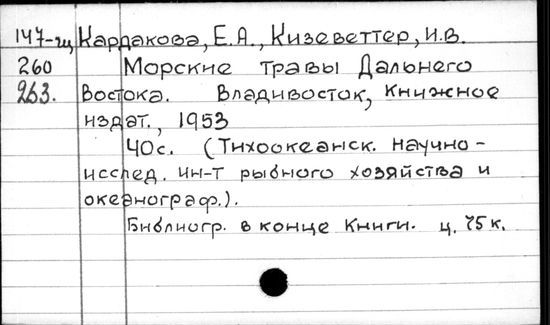 147-гц Кардакова, Е.А., Кизеветтер, И.В.
260 Морские травы Дальнего
263. Востока. Владивосток, Книжное
издат., 1953
40с. (Тихоокеанск. научно-
исслед. ин-т рыбного хозяйства и
океанограф.).
Библиогр. в конце книги. ц. 75 к.